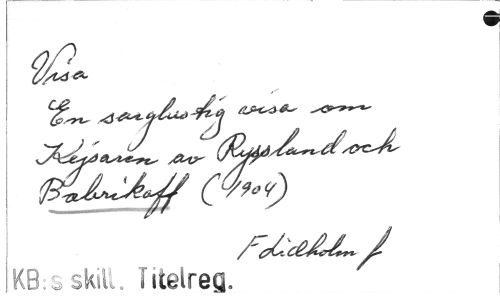 Visa
En sorglustig visa om
Kejsaren av Ryssland och
Bobrikoff (1904)
F Lidholm f
KB:s skill. Titelreg.